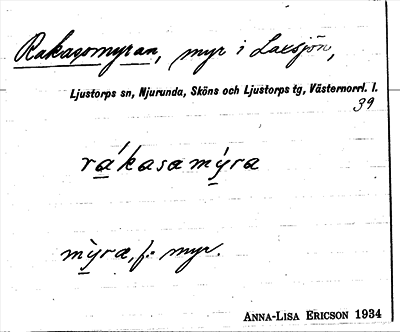 Rakasomyran, myr i Laxsjön,
Ljustorps sn, Njurunda, Sköns och Ljustorps tg, Västernorrl. l.
39
rákasamýra
mỳra, f. myr.
ANNA-LISA ERICSON 1934